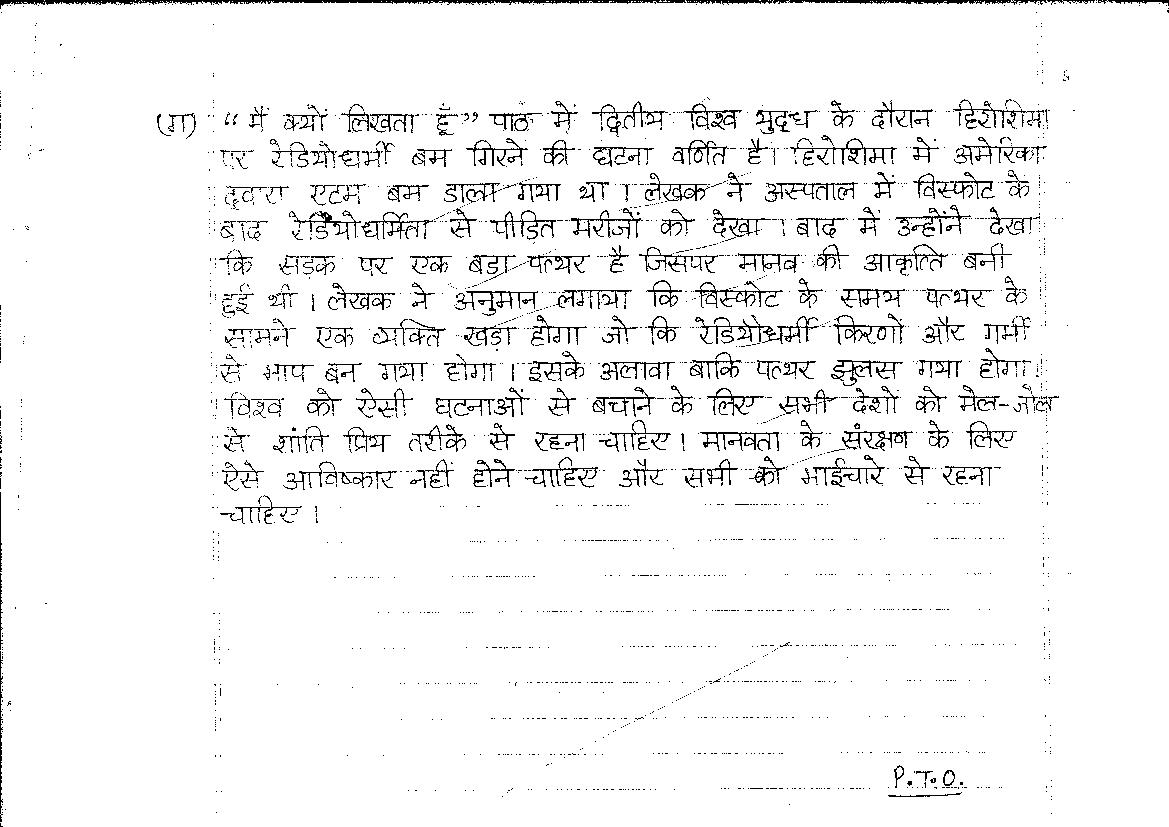 (ग) “मैं क्यों लिखता हूँ” पाठ में द्वितीय विश्व युद्ध के दौरान हिरोशिमा
पर रेडियोधर्मी बम गिरने की घटना वर्णित है। हिरोशिमा में अमेरिका
द्वारा एटम बम डाला गया था । लेखक ने अस्पताल में विस्फोट के
बाद रेडियोधर्मिता से पीड़ित मरीजों को देखा । बाद में उन्होंने देखा
कि सड़क पर एक बड़ा पत्थर है जिसपर मानव की आकृत्ति बनी
हुई थी । लेखक ने अनुमान लगाया कि विस्फोट के समय पत्थर के
सामने एक व्यक्ति खड़ा होगा जो कि रेडियोधर्मी किरणों और गर्मी
से भाप बन गया होगा । इसके अलावा बाकि पत्थर झुलस गया होगा।
विश्व को ऐसी घटनाओं से बचाने के लिए सभी देशों को मेल-जोल
से शांति प्रिय तरीके से रहना चाहिए । मानवता के संरक्षण के लिए
ऐसे आविष्कार नहीं होने चाहिए और सभी को भाईचारे से रहना
चाहिए ।
P.T.O.